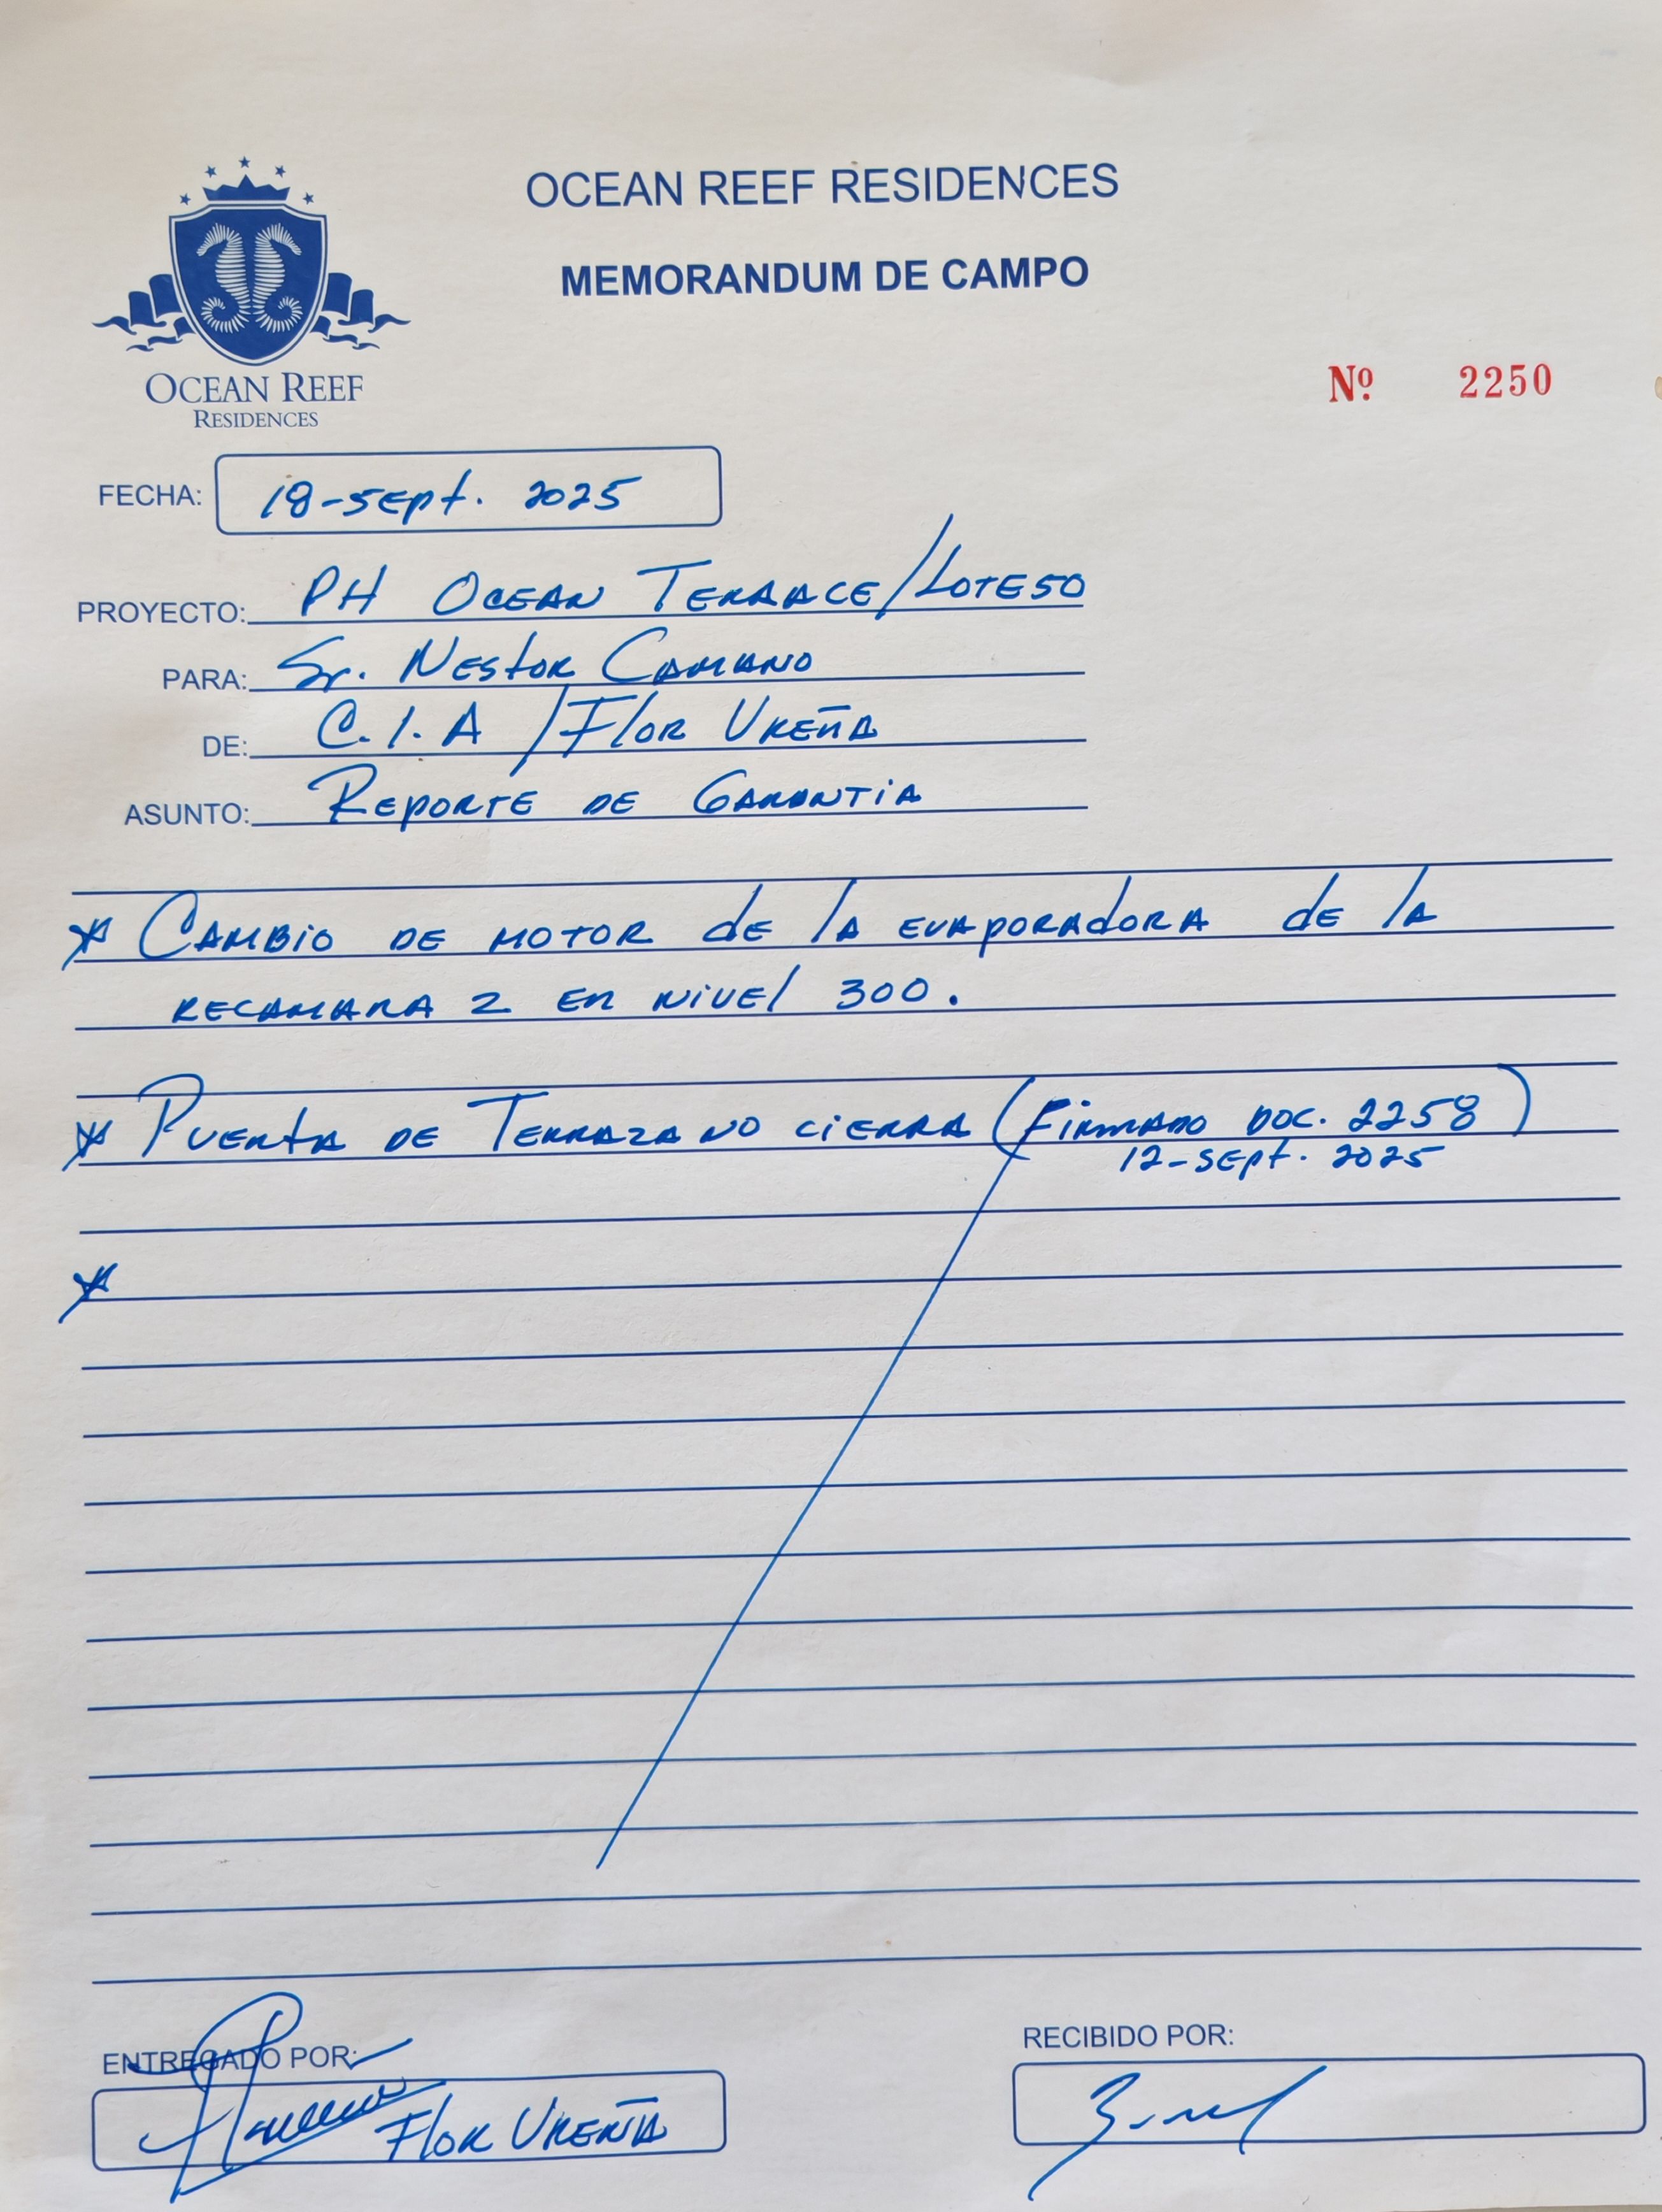 OCEAN REEF RESIDENCES
MEMORANDUM DE CAMPO
OCEAN REEF
RESIDENCES
Nº 2250
FECHA: 18-SEPT. 2025
PROYECTO: PH OCEAN TERRACE/LOTE50
PARA: Sr. NESTOR CAMANO
DE: C.I.A / FLOR UREÑA
ASUNTO: REPORTE DE GARANTIA
* CAMBIO DE MOTOR de LA EVAPORADORA de LA
RECAMARA 2 EN NIVEL 300.
* PUERTA DE TERRAZA NO CIERRA (FIRMADO DOC. 2258)
12-SEPT. 2025
*
ENTREGADO POR:
FLOR UREÑA
RECIBIDO POR: